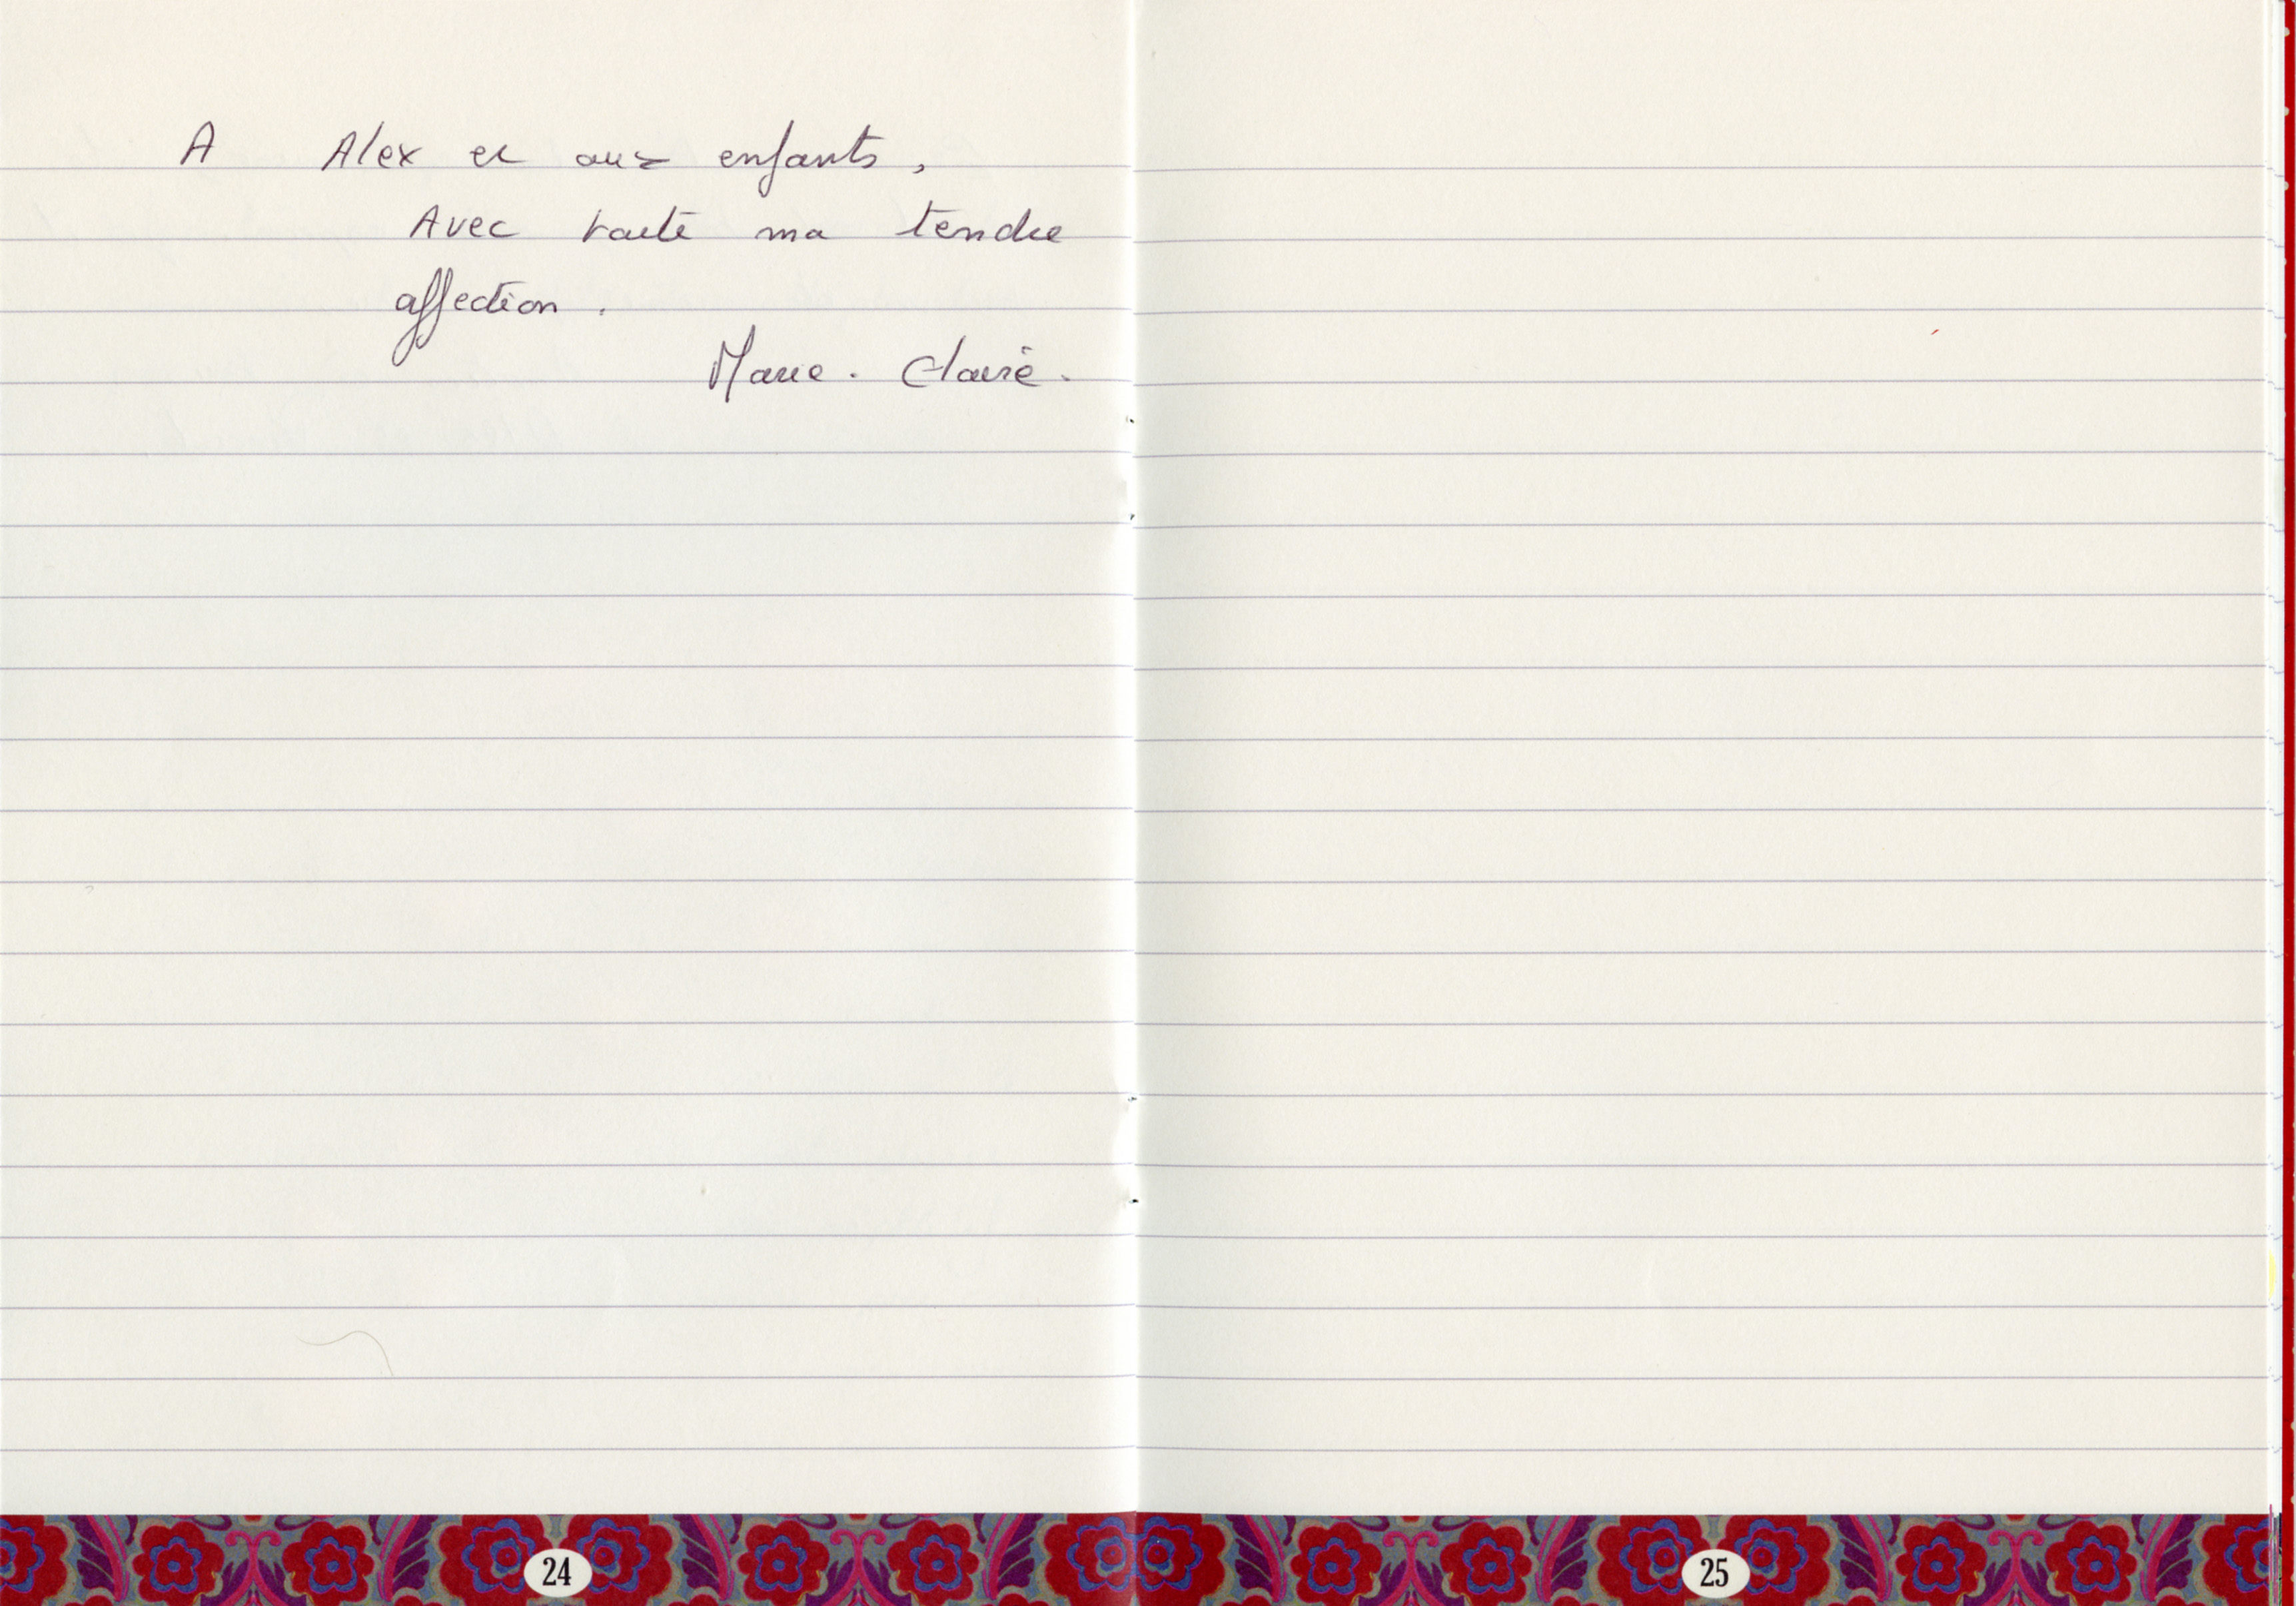 A Alex et aux enfants,
Avec toute ma tendre
affection.
Marie-Claire.
24
25